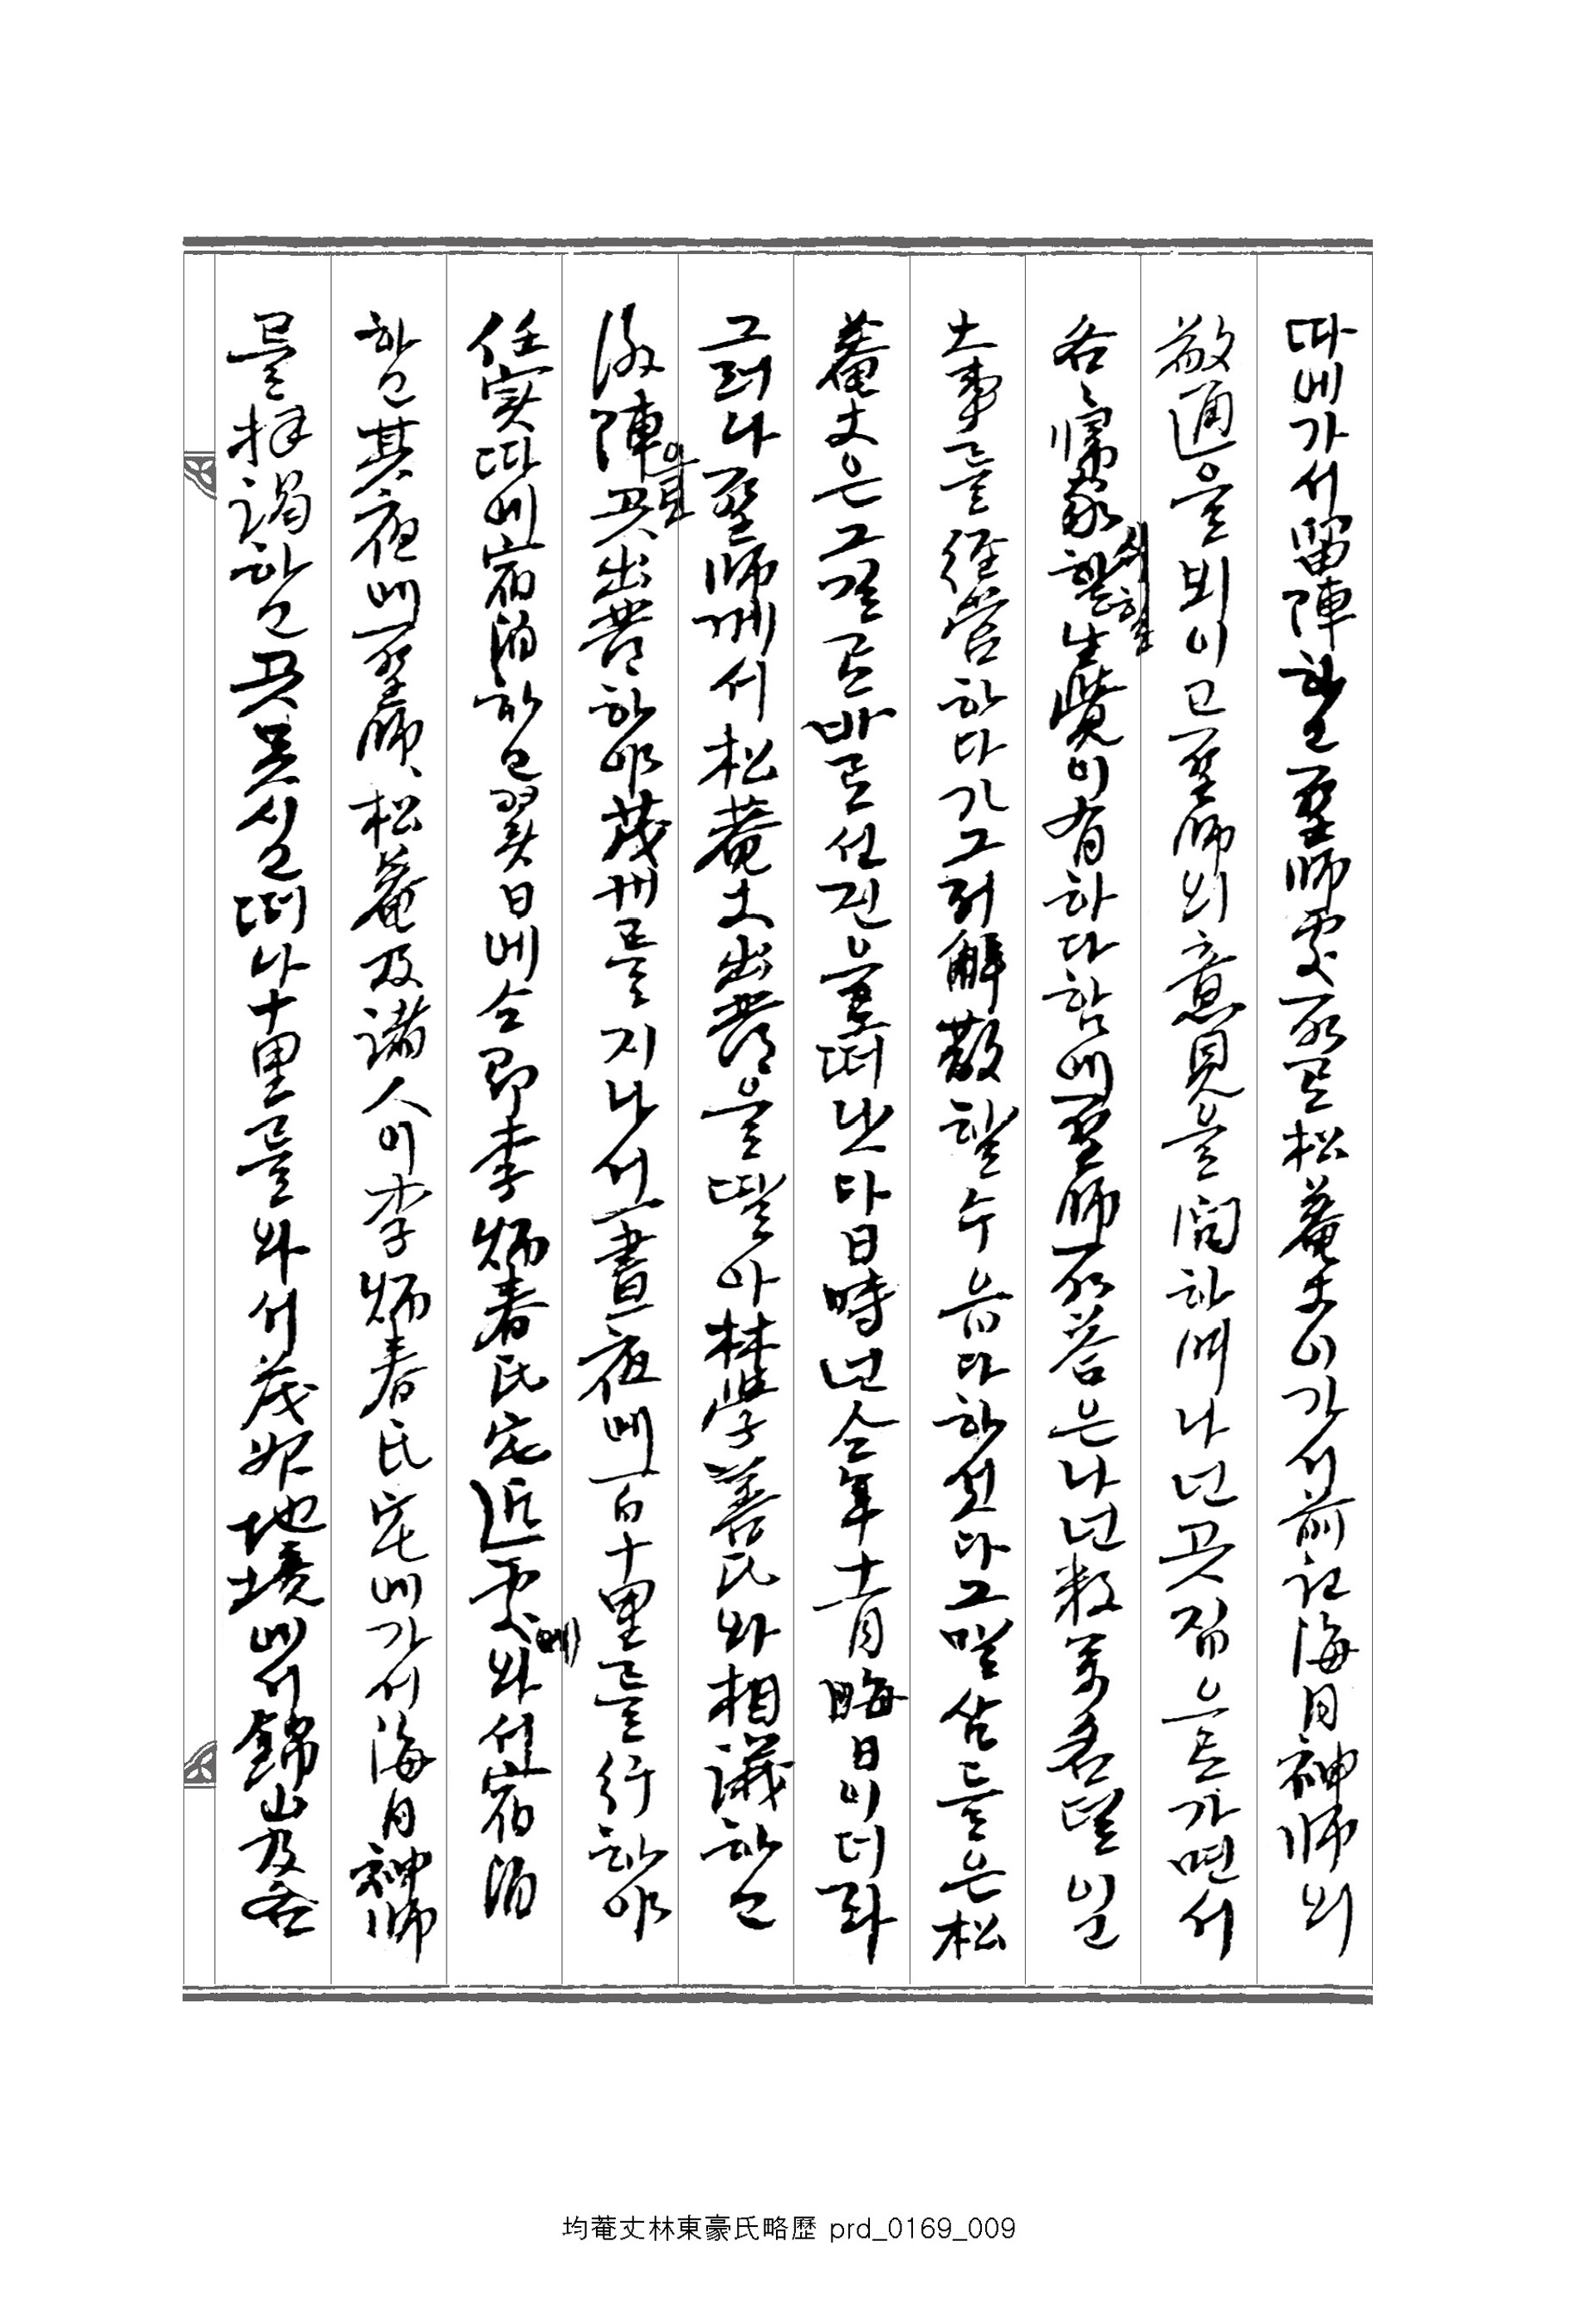 따에가서留陣하고聖師處所로松菴丈이가서前記海月神師의
敬通을뵈이고聖師의意見을問하매나난곳집으로가면서
各各歸家하야生覺이有하다함에聖師所答은나난數萬名멀이고
大事를經營하다가그저解散할수읍다하셧다그맬삼들은松
菴丈은그길로바로任진을떠낫다日時난今年十一月晦日이더라
그러나聖師께서松菴丈出發을딸아林學善氏와相議하고
後陣으로곳出發하야茂州를지나서一晝一夜에一百十里를行하야
任實따에宿泊하고翌日에今即李炳春氏宅近處에와서宿泊
하고其夜에聖師、松菴及諸人이李炳春氏宅에가서海月神師
를拜謁하고곳모시고떠나十里를와서茂朱地境에서錦山及各
均菴丈林東豪氏略歷 prd_0169_009